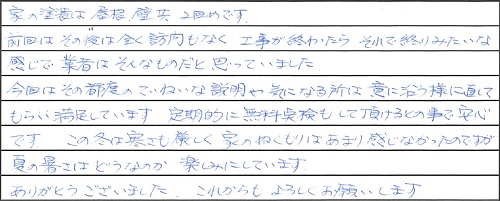 家の塗装は屋根、壁共 2回めです。
前回はその後は全く訪問もなく 工事が終わったら それで終りみたいな
感じで業者はそんなものだと思っていました
今回はその都度のていねいな説明や気になる所は意に沿う様に直して
もらい満足しています 定期的に無料点検もして頂けるとの事で安心
です この冬は寒さも厳しく家のぬくもりはあまり感じなかったのですが
夏の暑さはどうなのか 楽しみにしています
ありがとうございました。 これからもよろしくお願いします